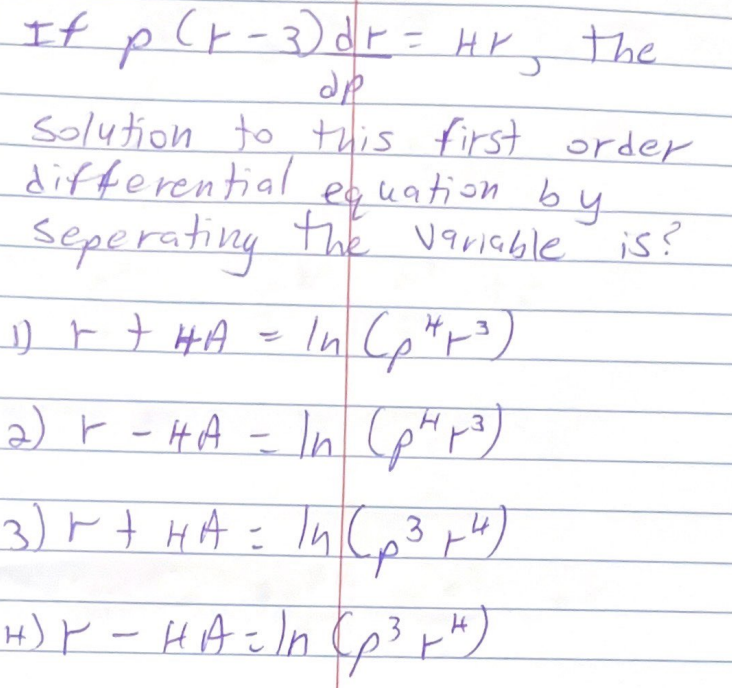 If p(r-3)dr/dp = 4r, the
solution to this first order
differential equation by
seperating the variable is?
1) r + 4A = ln(p⁴r³)
2) r - 4A = ln(p⁴r³)
3) r + 4A = ln(p³r⁴)
4) r - 4A = ln(p³r⁴)